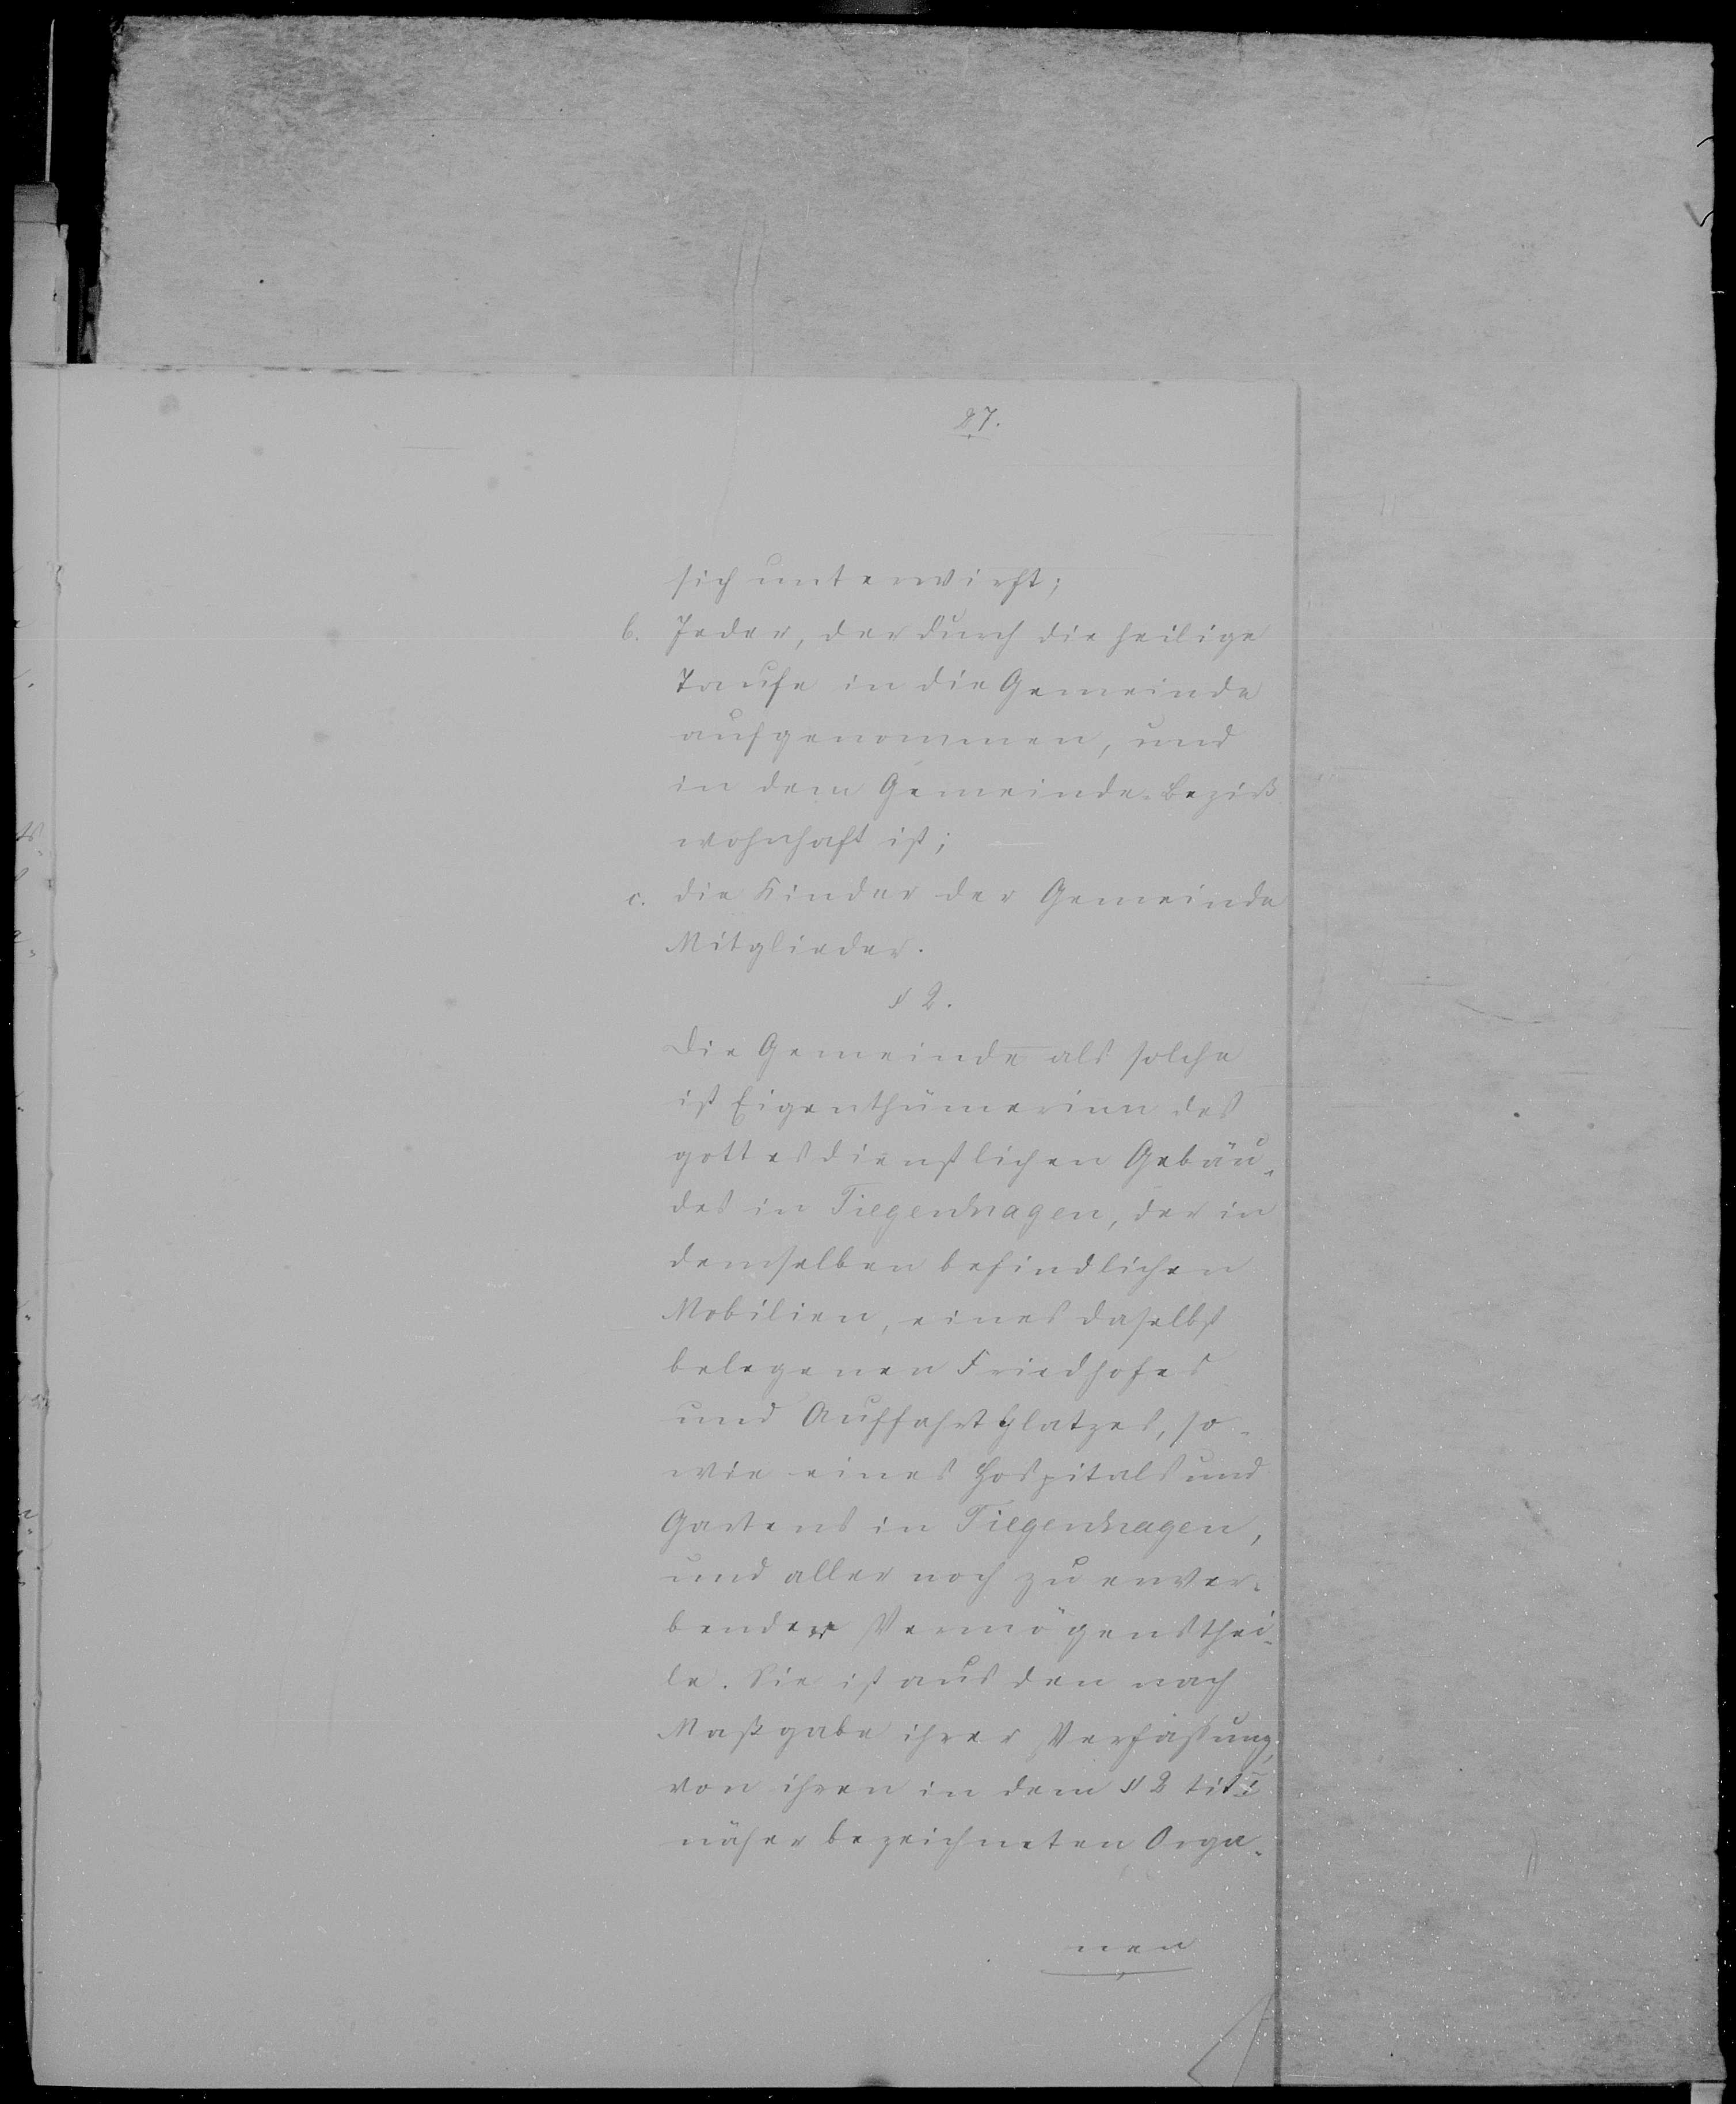 27.
sich unterwirft;
b. Jeder, der durch die heilige
Taufe in die Gemeinde
aufgenommen, und
in dem Gemeinde-Bezirk
wohnhaft ist;
c. die Kinder der Gemeinde
Mitglieder.
§ 2.
Die Gemeinde als solche
ist Eigenthümerinn des
gottesdienstlichen Gebäu-
des in Tiegenhagen, der in
demselben befindlichen
Mobilien, eines daselbst
belegenen Friedhofes
und Auffahrtplatzes, so-
wie eines Hospitals und
Gartens in Tiegenhagen,
und aller noch zu erwer-
bender Vermögensthei-
le. Sie ist aus den nach
Maßgabe ihrer Verfassung,
von ihren in dem § 2 tit
näher bezeichneten Orga-
nen